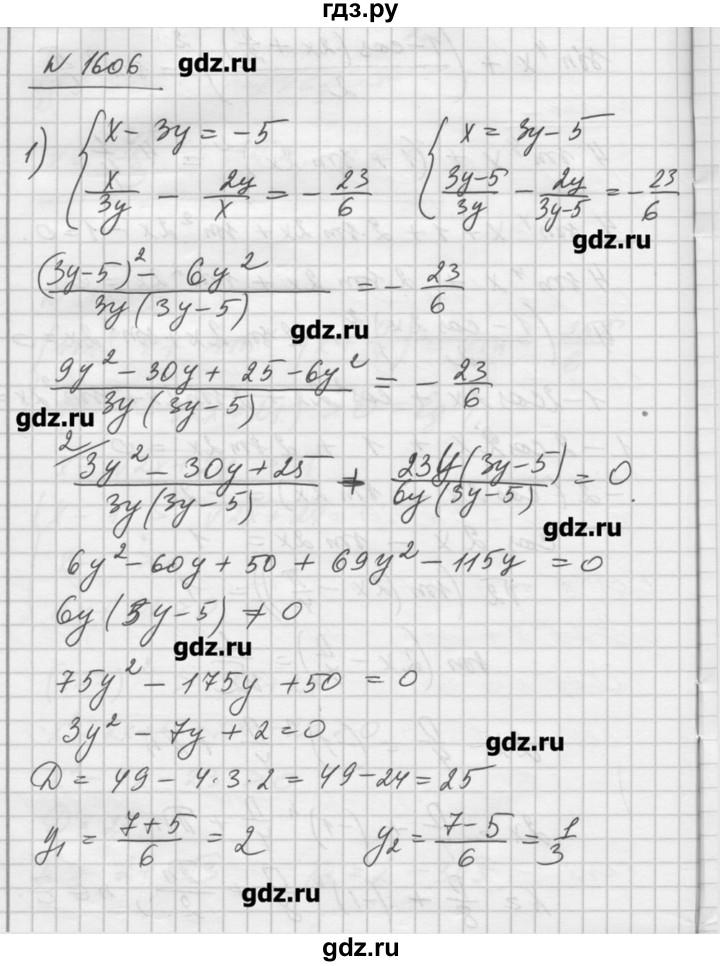 гдз.ру
N 1606 gdz.ru
1) { x - 3y = -5   { x = 3y - 5
x/3y - 2y/x = - 23/6   (3y-5)/3y - 2y/(3y-5) = - 23/6
gdz.ru
((3y-5)² - 6y²)/(3y(3y-5)) = - 23/6
gdz.ru
(9y² - 30y + 25 - 6y²)/(3y(3y-5)) = - 23/6
gdz.ru
2/ (3y² - 30y + 25)/(3y(3y-5)) + (23y(3y-5))/(6y(3y-5)) = 0.
gdz.ru
6y² - 60y + 50 + 69y² - 115y = 0
6y(3y-5) ≠ 0
gdz.ru
75y² - 175y + 50 = 0
3y² - 7y + 2 = 0
gdz.ru
D = 49 - 4·3·2 = 49 - 24 = 25
y₁ = (7+5)/6 = 2   y₂ = (7-5)/6 = 1/3
gdz.ru
gdz.ru